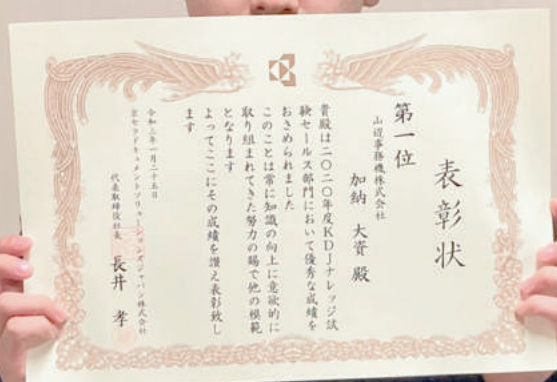 表彰状
第一位
山辺事務機株式会社
加納 大資 殿
貴殿は二〇二〇年度KDJナレッジ試
験セールス部門において優秀な成績を
おさめられました
このことは常に知識の向上に意欲的に
取り組まれてきた努力の賜で他の模範
となります
よってここにその成績を讃え表彰致し
ます
令和三年一月二十五日
京セラドキュメントソリューションズジャパン株式会社
代表取締役社長 長井 孝